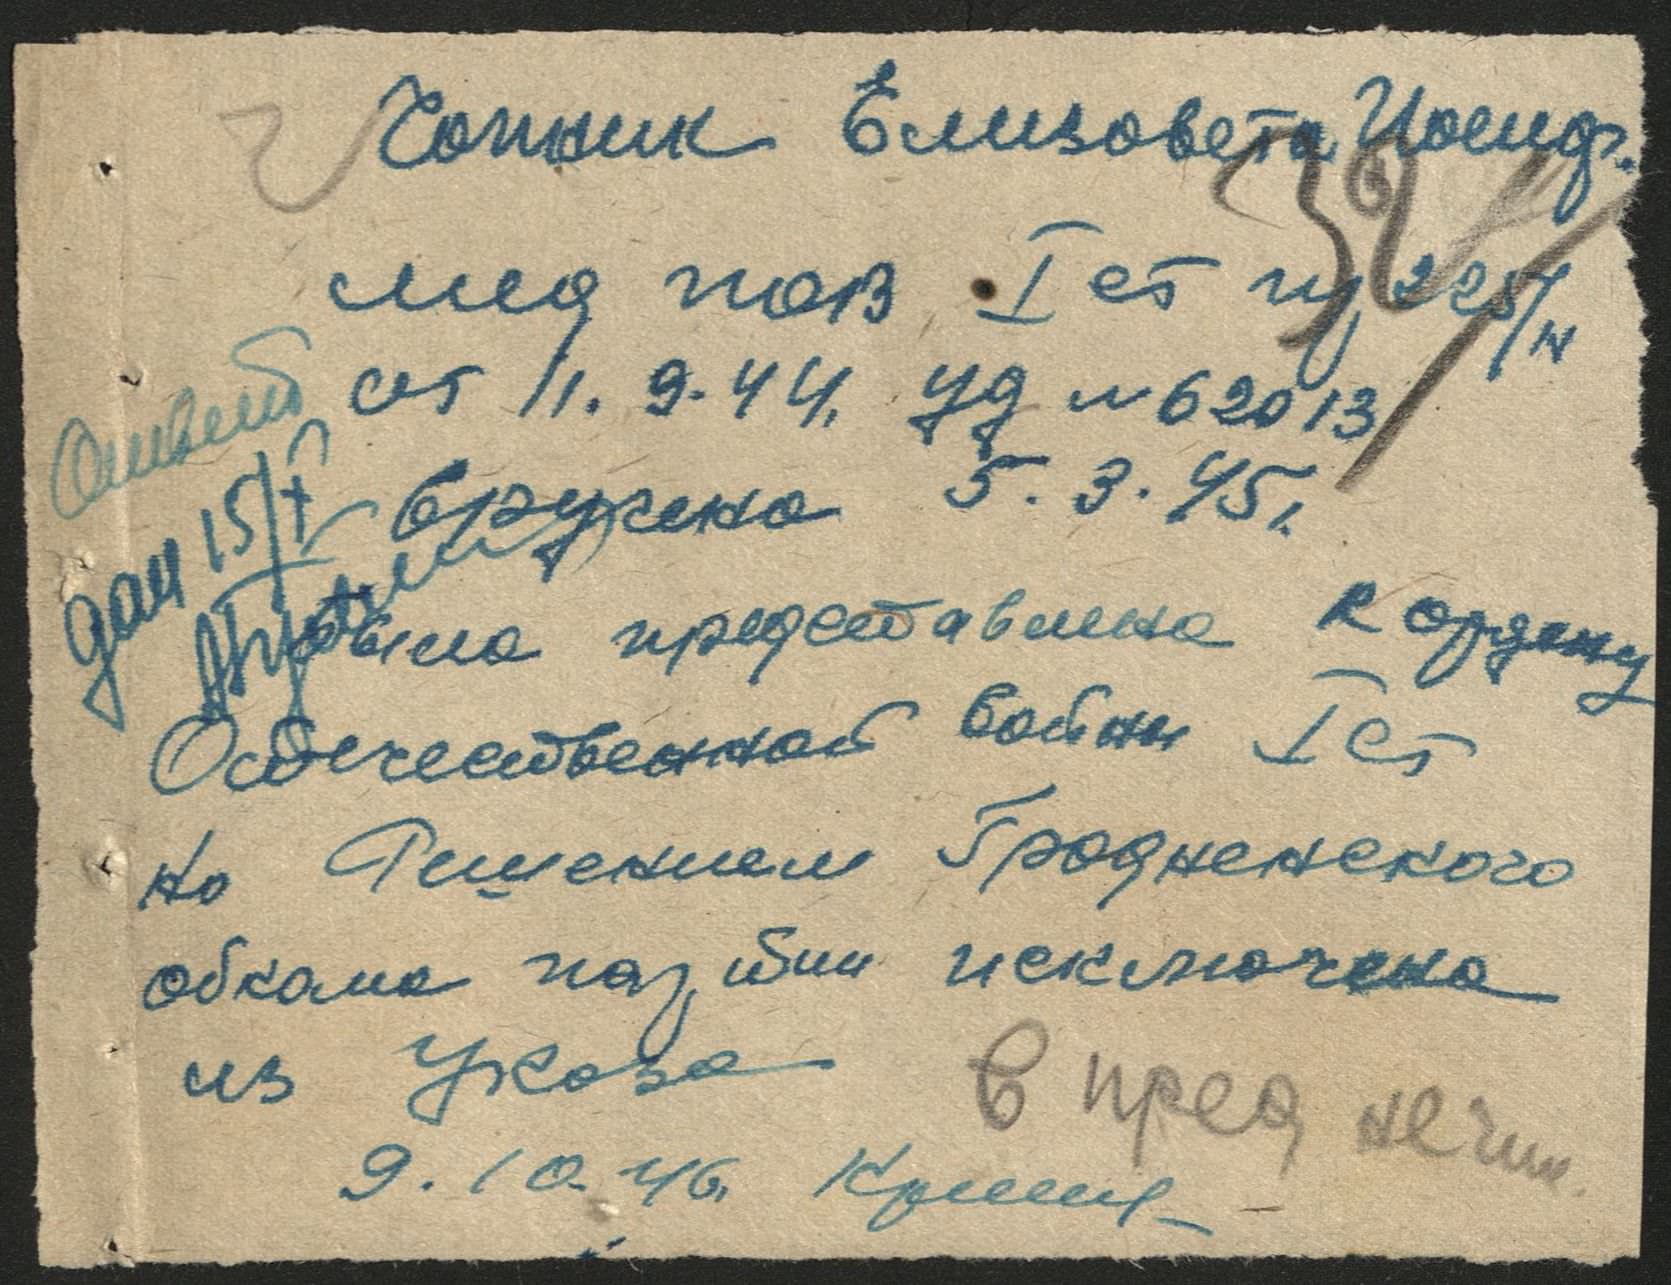 Чопник Елизовета Иосиф.
мед пов I ст пр 225/н
от 11.9.44. уд № 62013
вручена 5.3.45г.
Ответ
дан 15/X
была представлена к ордену
Отечественной войны I ст
но Решением Гродненского
обкома партии исключена
из Указа
в пред не чис.
9.10.46.